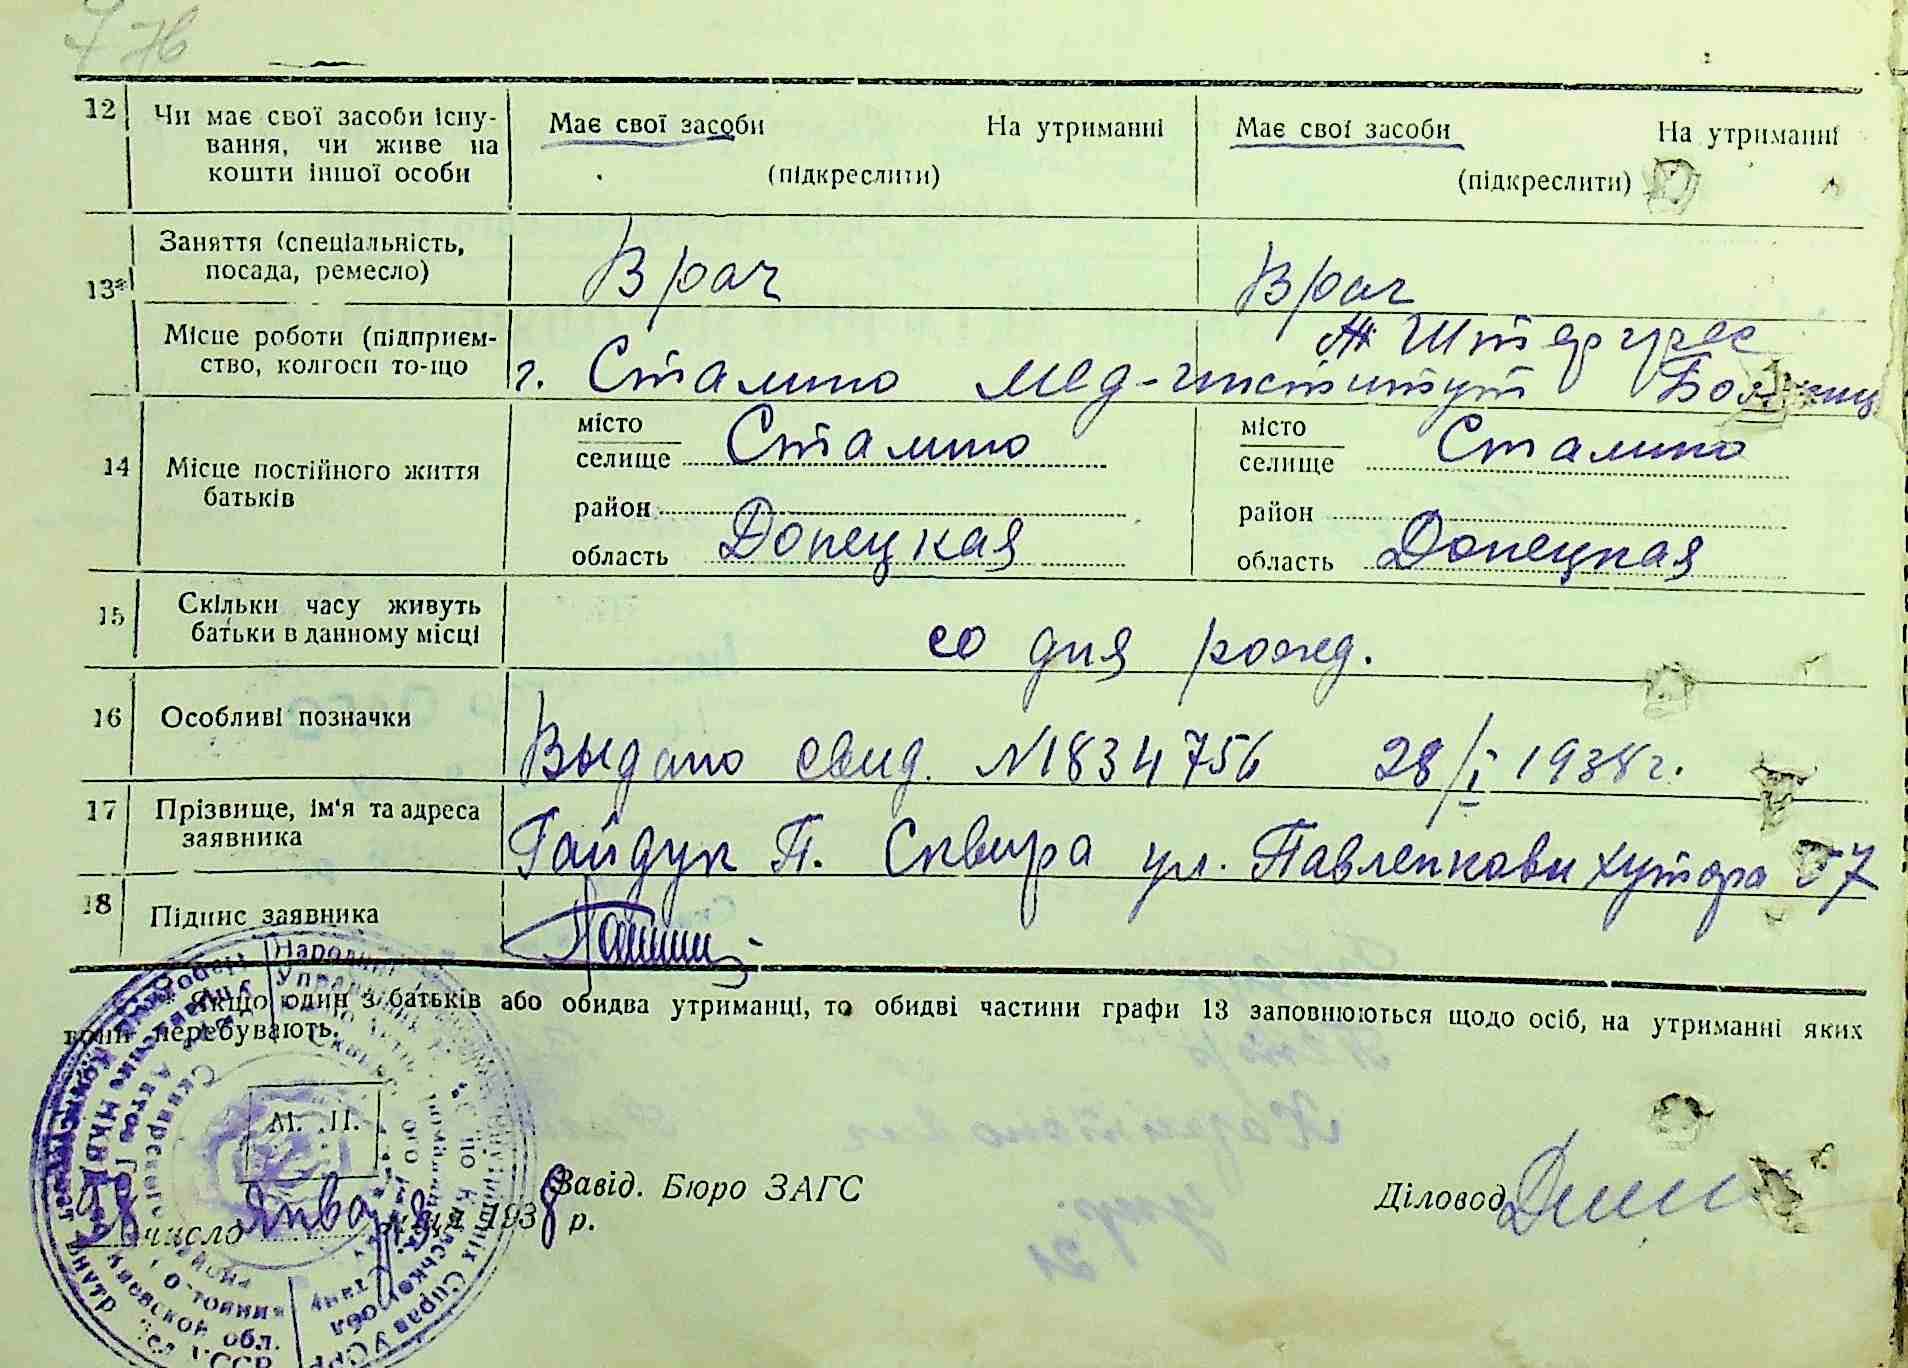 776
12 Чи має свої засоби існу-
вання, чи живе на
кошти іншої особи
Має свої засоби На утриманні
(підкреслити)
Має свої засоби На утриманні
(підкреслити)
13* Заняття (спеціальність,
посада, ремесло)
Врач
Врач
Місце роботи (підприєм-
ство, колгосп то-що
г. Сталино мед-институт
Штергрес
14 Місце постійного життя
батьків
місто
селище Сталино
район
область Донецкая
місто
селище Сталино
район
область Донецкая
15 Скільки часу живуть
батьки в данному місці
со дня рожд.
16 Особливі позначки
Выдано свид. N1834756 28/I 1938г.
17 Прізвище, ім'я та адреса
заявника
Гайдук П. Сквира ул. Павленкови хутора 57
18 Підпис заявника
* Якщо один з батьків або обидва утриманці, то обидві частини графи 13 заповнюються щодо осіб, на утриманні яких
вони перебувають.
М. П.
28 число января 1938 р.
Завід. Бюро ЗАГС
Діловод
Киевской обл.